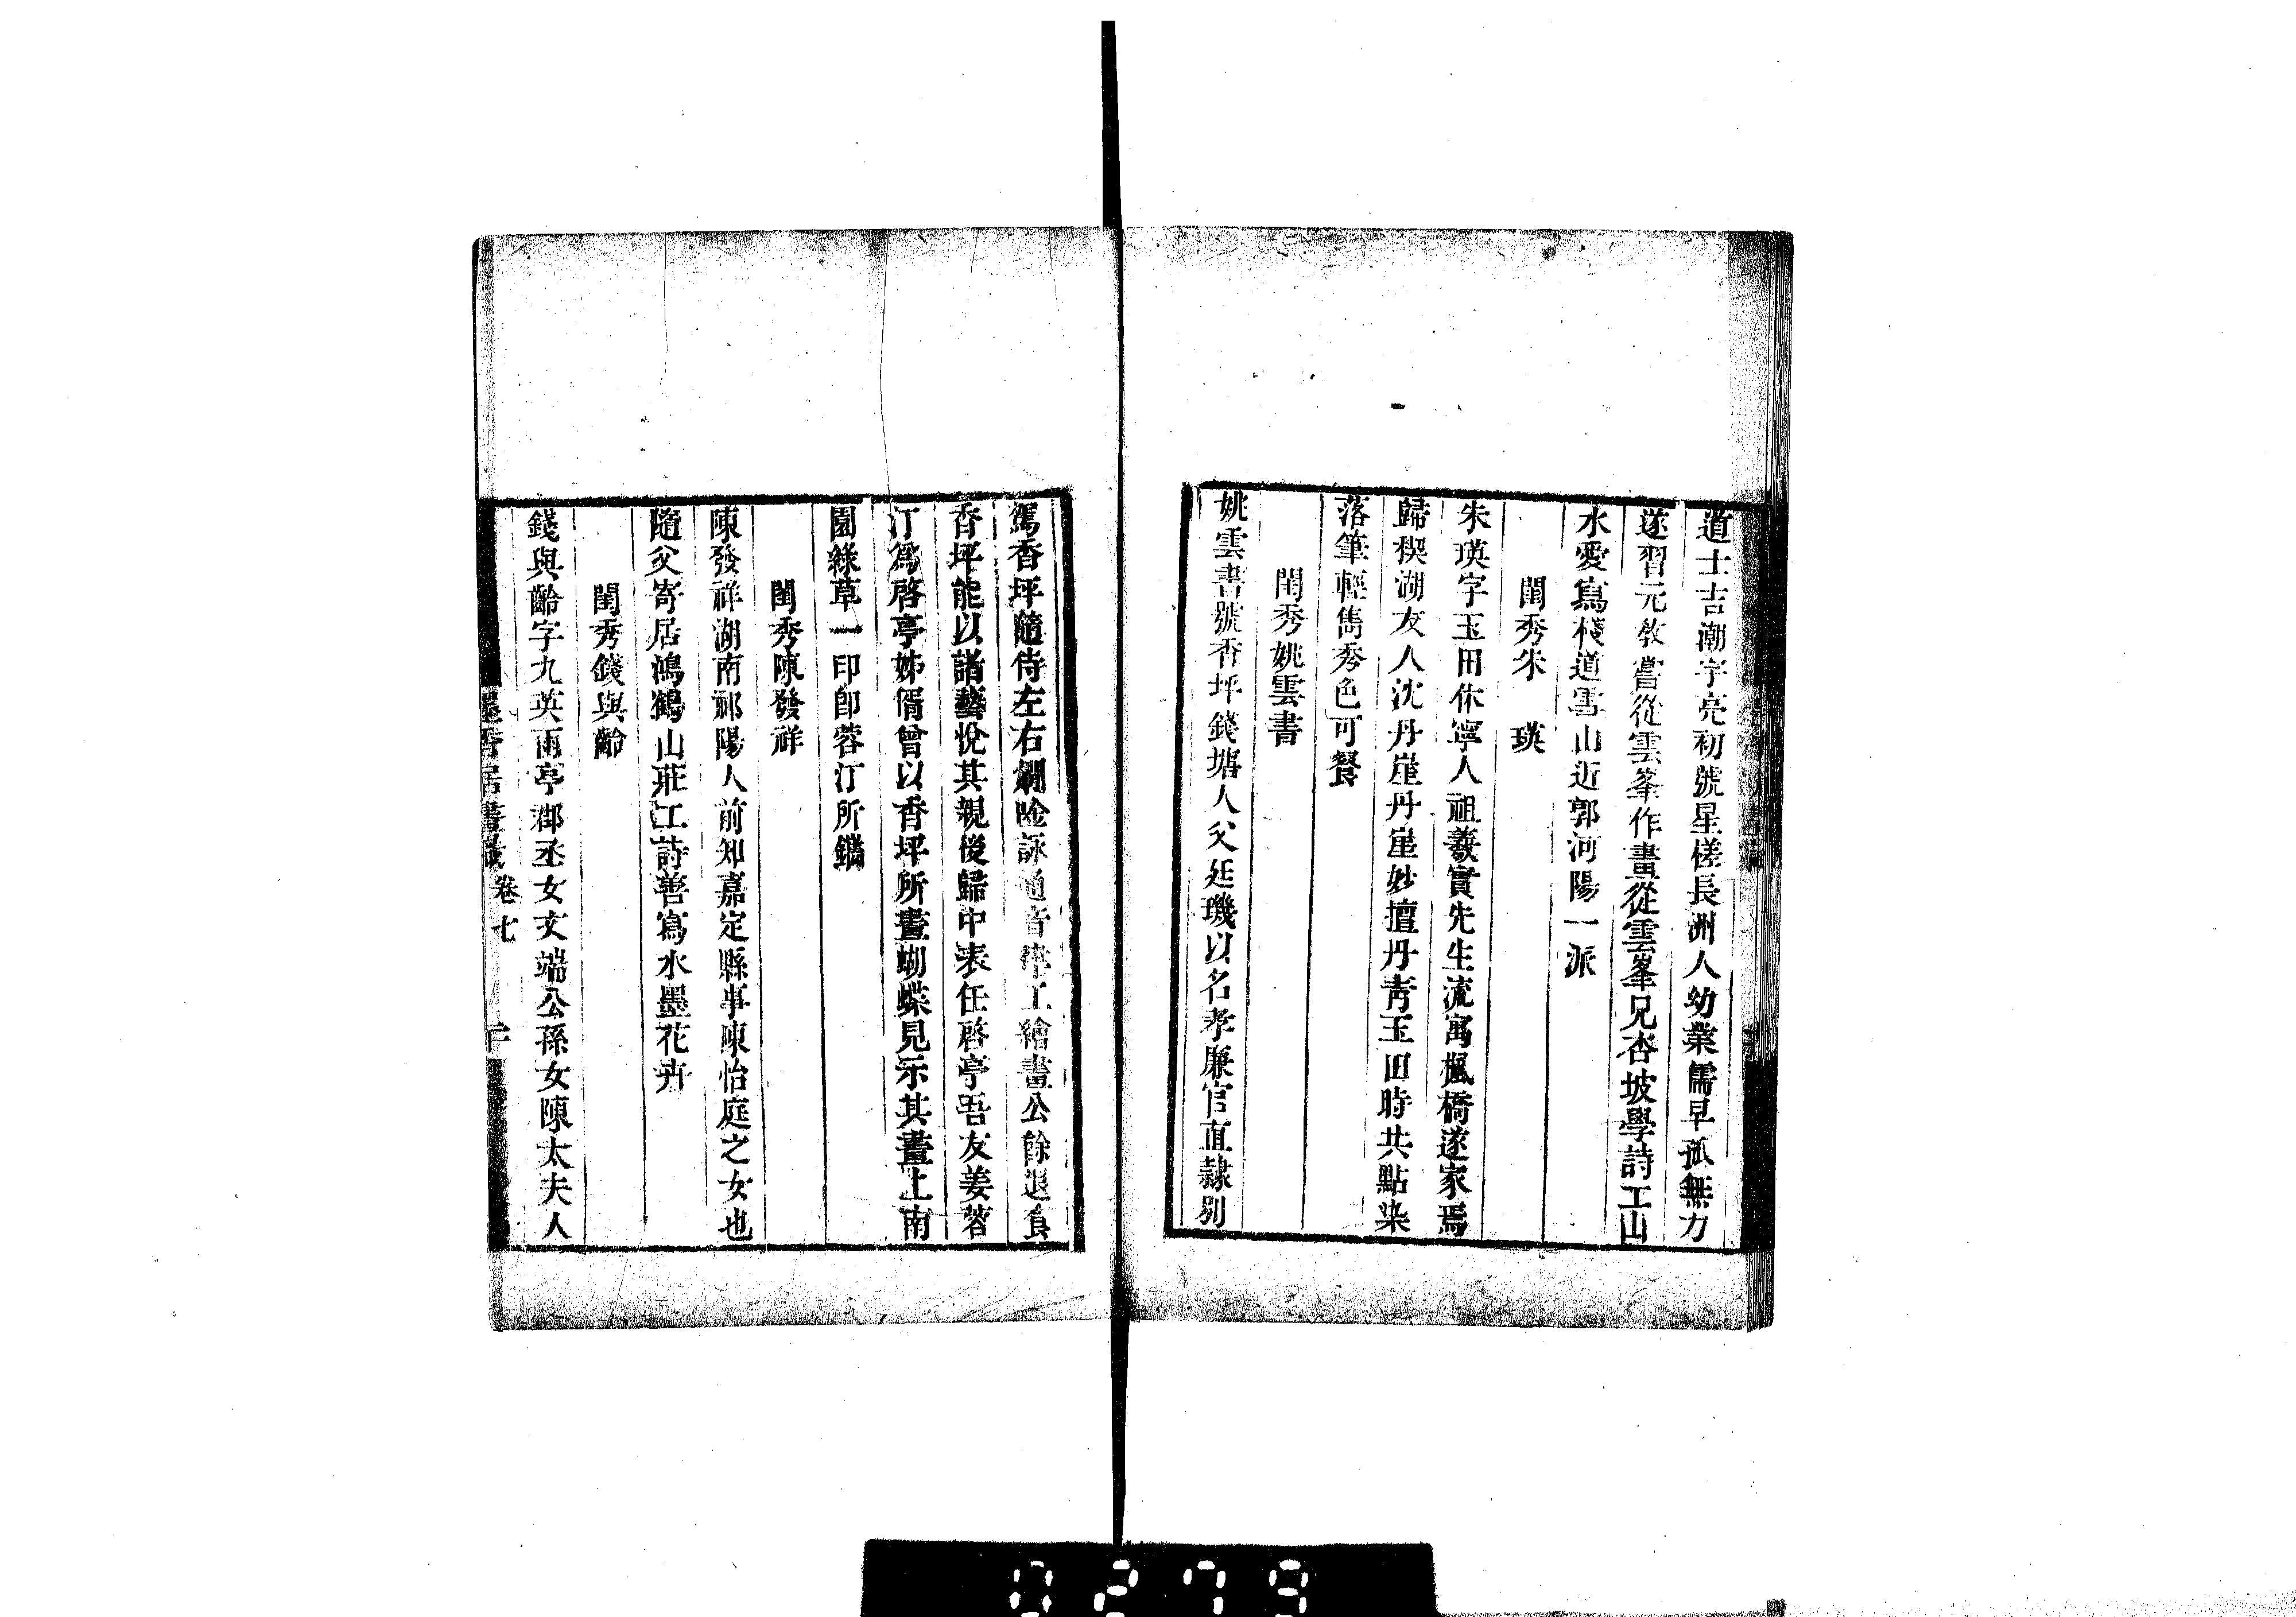 道士吉潮字亮初號星槎長洲人幼業儒早孤無力
遂習元敎嘗從雲峯作畫從雲峯兄杏坡學詩工山
水愛寫棧道雪山近郭河陽一派
閨秀朱　瑛
朱瑛字玉田休寧人祖羲實先生流寓楓橋遂家焉
歸禊湖友人沈丹崖丹崖妙擅丹靑玉田時共點染
落筆輕雋秀色可餐
閨秀姚雲書
姚雲書號香坪錢塘人父廷璣以名孝廉官直隸別
駕香坪隨侍左右嫻唫詠通音律工繪畫公餘退食
香坪能以諸藝悅其親後歸中表任啓亭吾友姜蓉
汀爲啓亭姊倩曾以香坪所畫蝴蝶見示其畫上南
園綠草一印卽蓉汀所鐫
閨秀陳發祥
陳發祥湖南祁陽人前知嘉定縣事陳怡庭之女也
隨父寄居鴻鶴山莊工詩善寫水墨花卉
閨秀錢與齡
錢與齡字九英雨亭郡丞女文端公孫女陳太夫人
墨香居畫識 卷七
0279